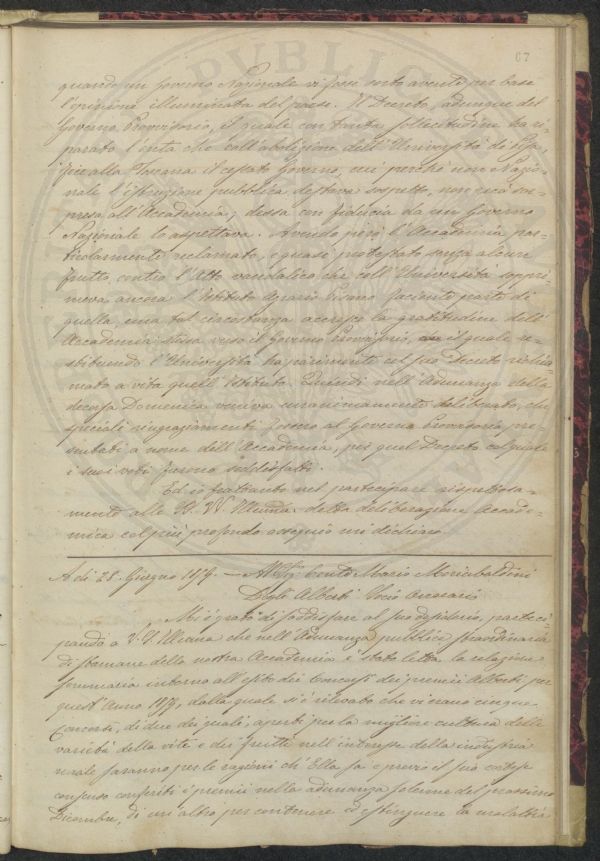 67
quando un Governo Nazionale vi fosse sorto avente per base
l'opinione illuminata del paese. Il Decreto adunque del
Governo Provvisorio, il quale con tanta sollecitudine ha ri=
parato l'onta che coll'abolizione dell'Università di Pisa,
fece alla Toscana il cessato Governo, cui perchè non Nazio=
nale l'istruzione pubblica destava sospetto, non è sor=
presa all'Accademia, dessa con fiducia da un Governo
Nazionale lo aspettava. Avendo però l'Accademia par=
ticolarmente reclamato, e quasi protestato senza alcun
frutto contro l'Atto vandalico che coll'Università soppri=
meva ancora l'Istituto Agrario Pisano facente parte di
quella, una tal circostanza accresce la gratitudine dell'
Accademia stessa verso il Governo Provvisorio, il quale re=
stituendo l'Università ha parimente col suo Decreto richia=
mato a vita quell'Istituto. Quindi nell'Adunanza della
decorsa Domenica veniva unanimamente deliberato, che
speciali ringraziamenti fossero al Governo Provvisorio pre=
sentati a nome dell'Accademia, per quel Decreto col quale
i suoi voti furono soddisfatti.
Ed io frattanto nel partecipare rispettosa=
mente alle VV. Illustme detta deliberazione Accade=
mica col più profondo ossequio mi dichiaro
A dì 28. Giugno 1859. — Conte Mario
Degli Alberti Socio Onorario
Mi è grato di soddisfare al suo desiderio, parteci=
pando a V. S. Illma che nell'Adunanza pubblica straordinaria
di stamane della nostra Accademia è stata letta la relazione
sommaria intorno all'esito dei Concorsi dei premii Alberti per
quest'Anno 1859, dalla quale si è rilevato che vi erano cinque
Concorsi, di due dei quali, aperti per la migliore cultura delle
varietà della vite e dei frutti nell'interesse della industria
rurale saranno per le ragioni ch'Ella sa e previo il suo cortese
consenso conferiti i premii nella adunanza solenne del prossimo
Dicembre, di un altro per contenere ed estinguere la malattia